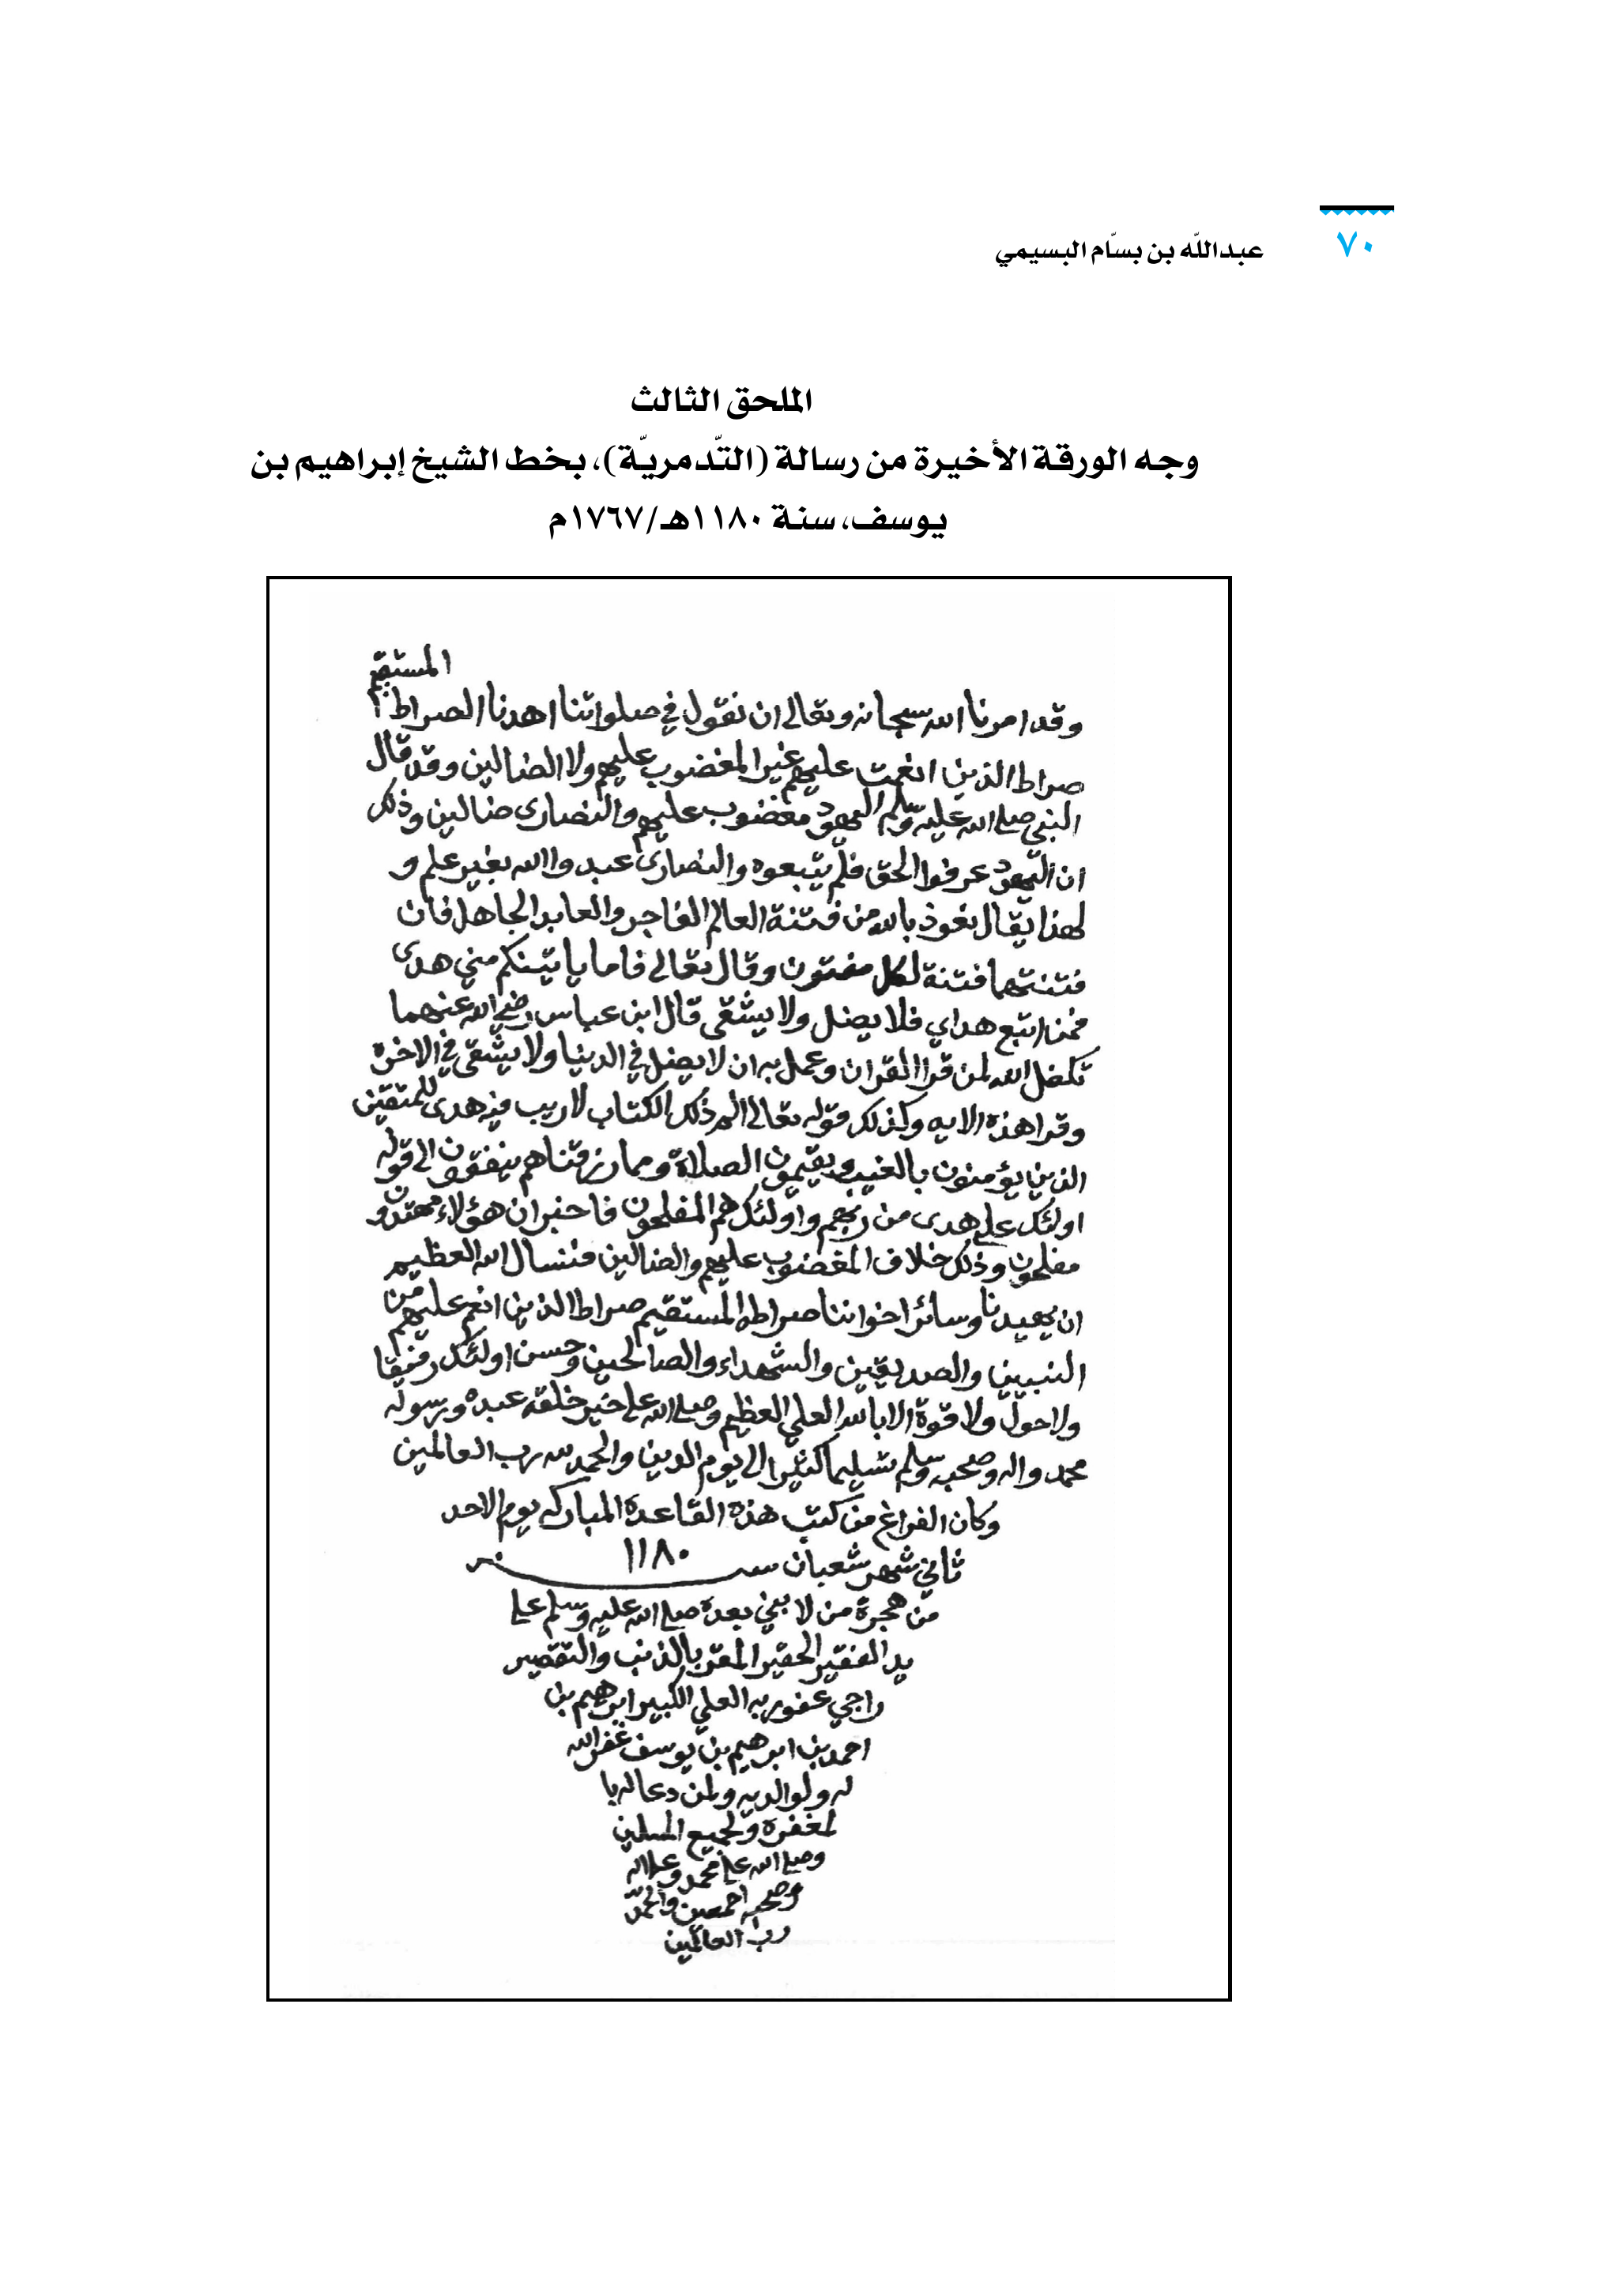 ٧٠
عبدالله بن بسّام البسيمي
الملحق الثالث
وجه الورقة الأخيرة من رسالة (التّدمريّة)، بخط الشيخ إبراهيم بن
يوسف، سنة ١١٨٠هـ/١٧٦٧م
المستقيم
وقد امرنا الله سبحانه وتعالى ان نقول في صلواتنا اهدنا الصراط
صراط الذين انعمت عليهم غير المغضوب عليهم ولا الضالين وقد قال
النبي صلى الله عليه وسلم اليهود مغضوب عليهم والنصارى ضالين وذلك
ان اليهود عرفوا الحق فلم يتبعوه والنصارى عبدوا الله بغير علم و
لهذا يقال نعوذ بالله من فتنة العالم الفاجر والعابد الجاهل فان
فتنتهما فتنة لكل مفتون وقال تعالى فاما ياتينكم مني هدى
فمن اتبع هداي فلا يضل ولا يشقى قال ابن عباس رضي الله عنهما
تكفل الله لمن قرا القران وعمل به ان لا يضل في الدنيا ولا يشقى في الاخرة
وقرا هذه الايه وكذلك قوله تعالى الم ذلك الكتاب لا ريب فيه هدى للمتقين
الذين يؤمنون بالغيب ويقيمون الصلاة ومما رزقناهم ينفقون الى قوله
اولئك على هدى من ربهم واولئك هم المفلحون فاخبر ان هؤلاء مهتدون
مفلحون وذلك خلاف المغضوب عليهم والضالين فنسال الله العظيم
ان يهيدنا وسائر اخواننا صراطه المستقيم صراط الذين انعم عليهم من
النبيين والصديقين والشهداء والصالحين وحسن اولئك رفيقا
ولا حول ولا قوة الا بالله العلي العظيم وصلى الله على خير خلقه عبده ورسوله
محمد واله وصحبه وسلم تسليما كثيرا الى يوم الدين والحمد لله رب العالمين
وكان الفراغ من كتب هذه القاعدة المباركه يوم الاحد
ثاني شهر شعبان سنة ١١٨٠
من هجرة من لا نبي بعده صلى الله عليه وسلم على
يد الفقير الحقير المقر بالذنب والتقصير
راجي عفو ربه العلي الكبير ابرهيم بن
احمد بن ابرهيم بن يوسف غفر الله
له ولوالديه ولمن دعا له با
لمغفرة ولجميع المسلمين
وصلى الله على محمد وعلى اله
وصحبه اجمعين والحمد لله
رب العالمين